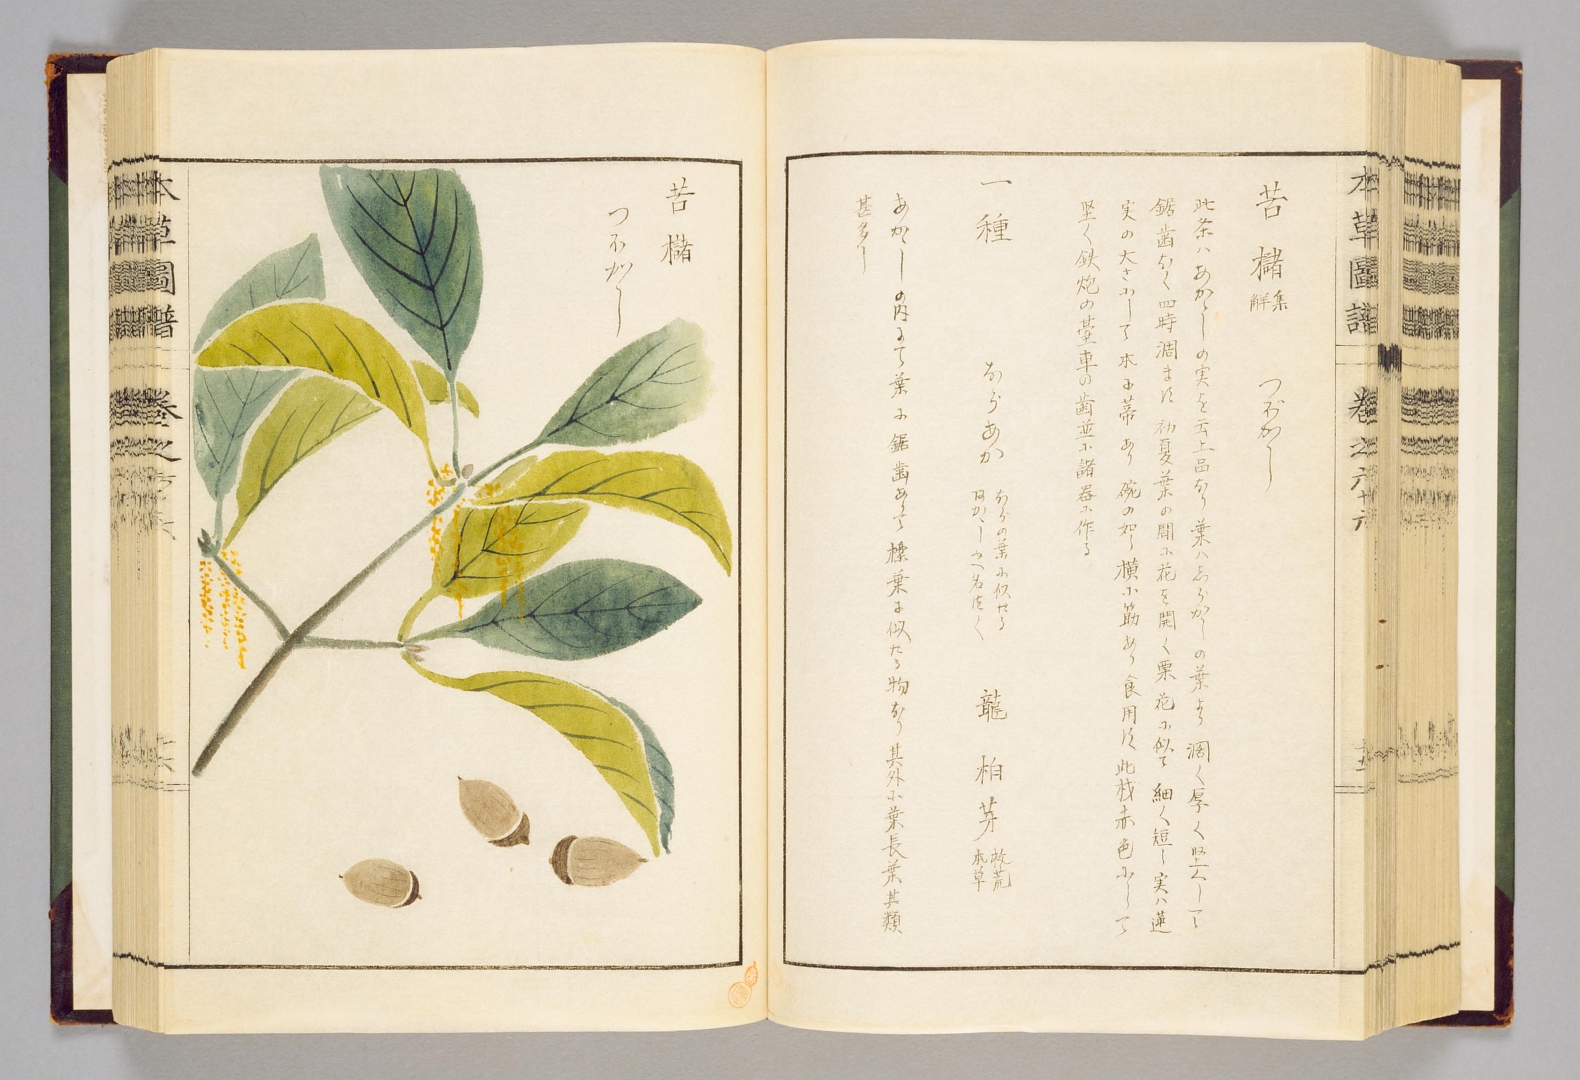 苦櫧 集解 つぶがし
此条ハあかがしの実を云上品なり葉ハしらかしの葉より濶く厚く堅くして
鋸歯なく四時凋まず初夏葉の間に花を開く栗花に似て細く短し実ハ蓮
実の大さにして本に蒂あり碗の如し横に筋あり食用す此材赤色にして
堅く鉄炮の臺車の歯並に諸器に作る
一種 ならあか ならの葉に似たる あかがしゆへ名づく 龍柏芽 救荒本草
あかがしの内にて葉に鋸歯ありて檪葉に似たる物なり其外に葉長葉其類
甚多し
苦櫧
つぶがし
本草圖譜 巻之六十六
本草圖譜 巻之